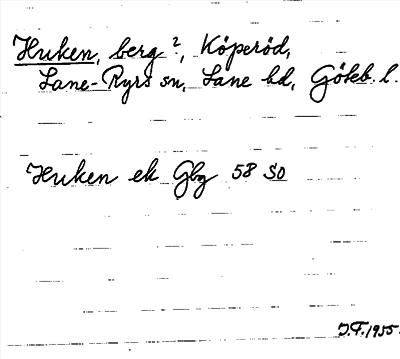 Huken, berg ?, Köperöd,
Lane-Ryrs sn, Lane hd, Götеb. l.
Huken ek Gbg 58 SO
J.F. 1955.